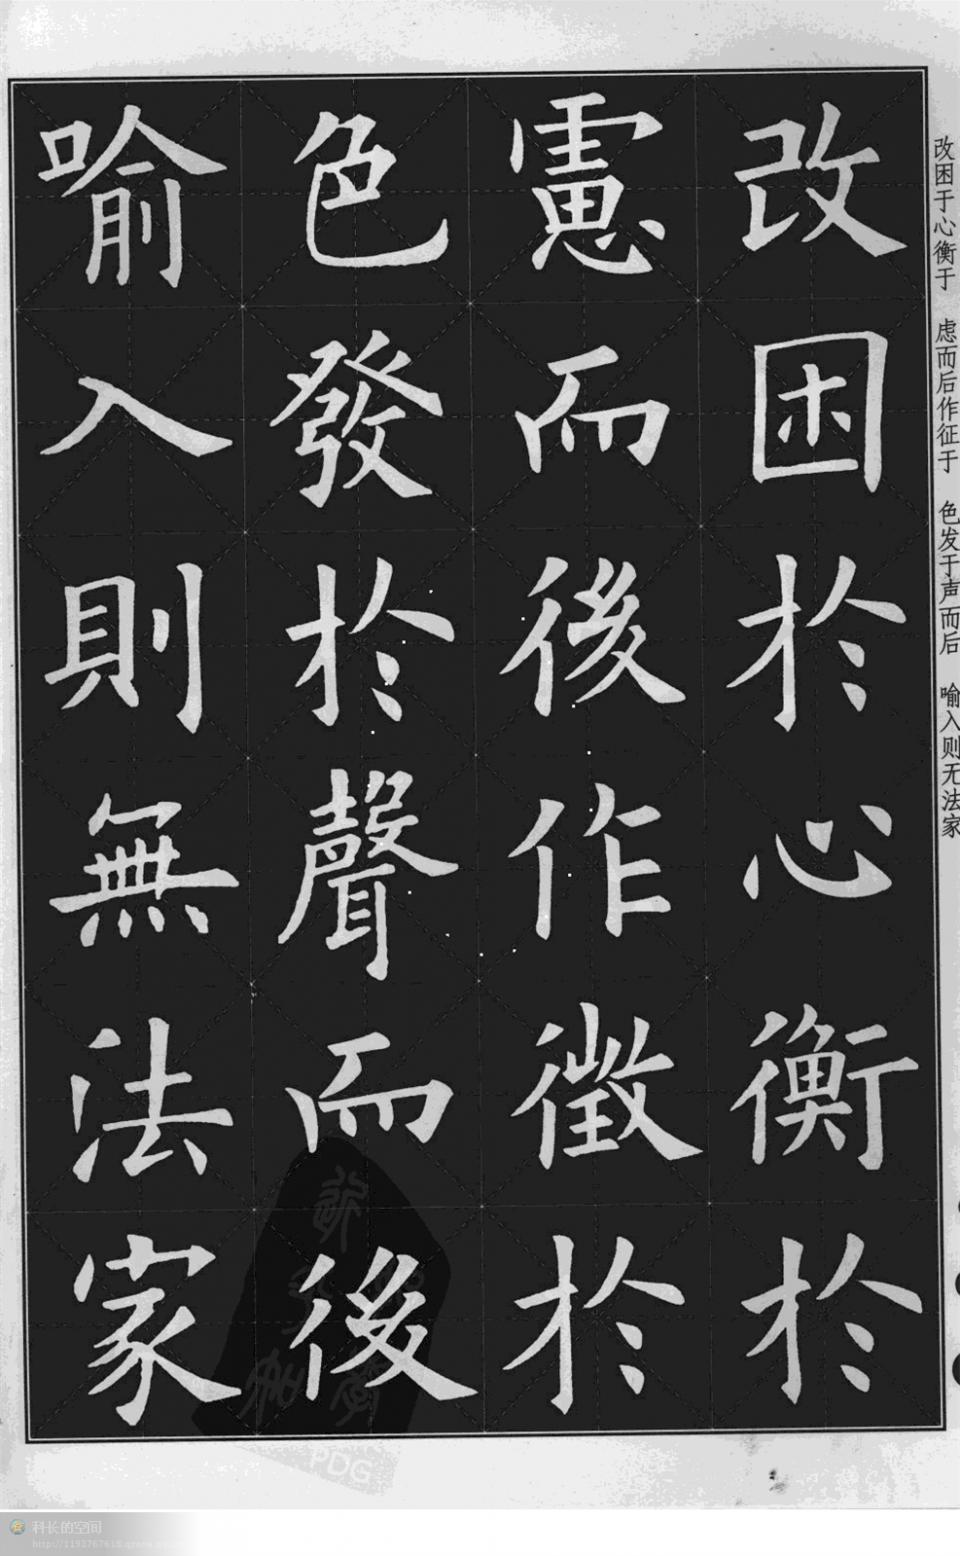 改困於心衡於
慮而後作徵於
色發於聲而後
喻入則無法家
改困于心衡于 虑而后作征于 色发于声而后 喻入则无法家
PDG
科长的空间